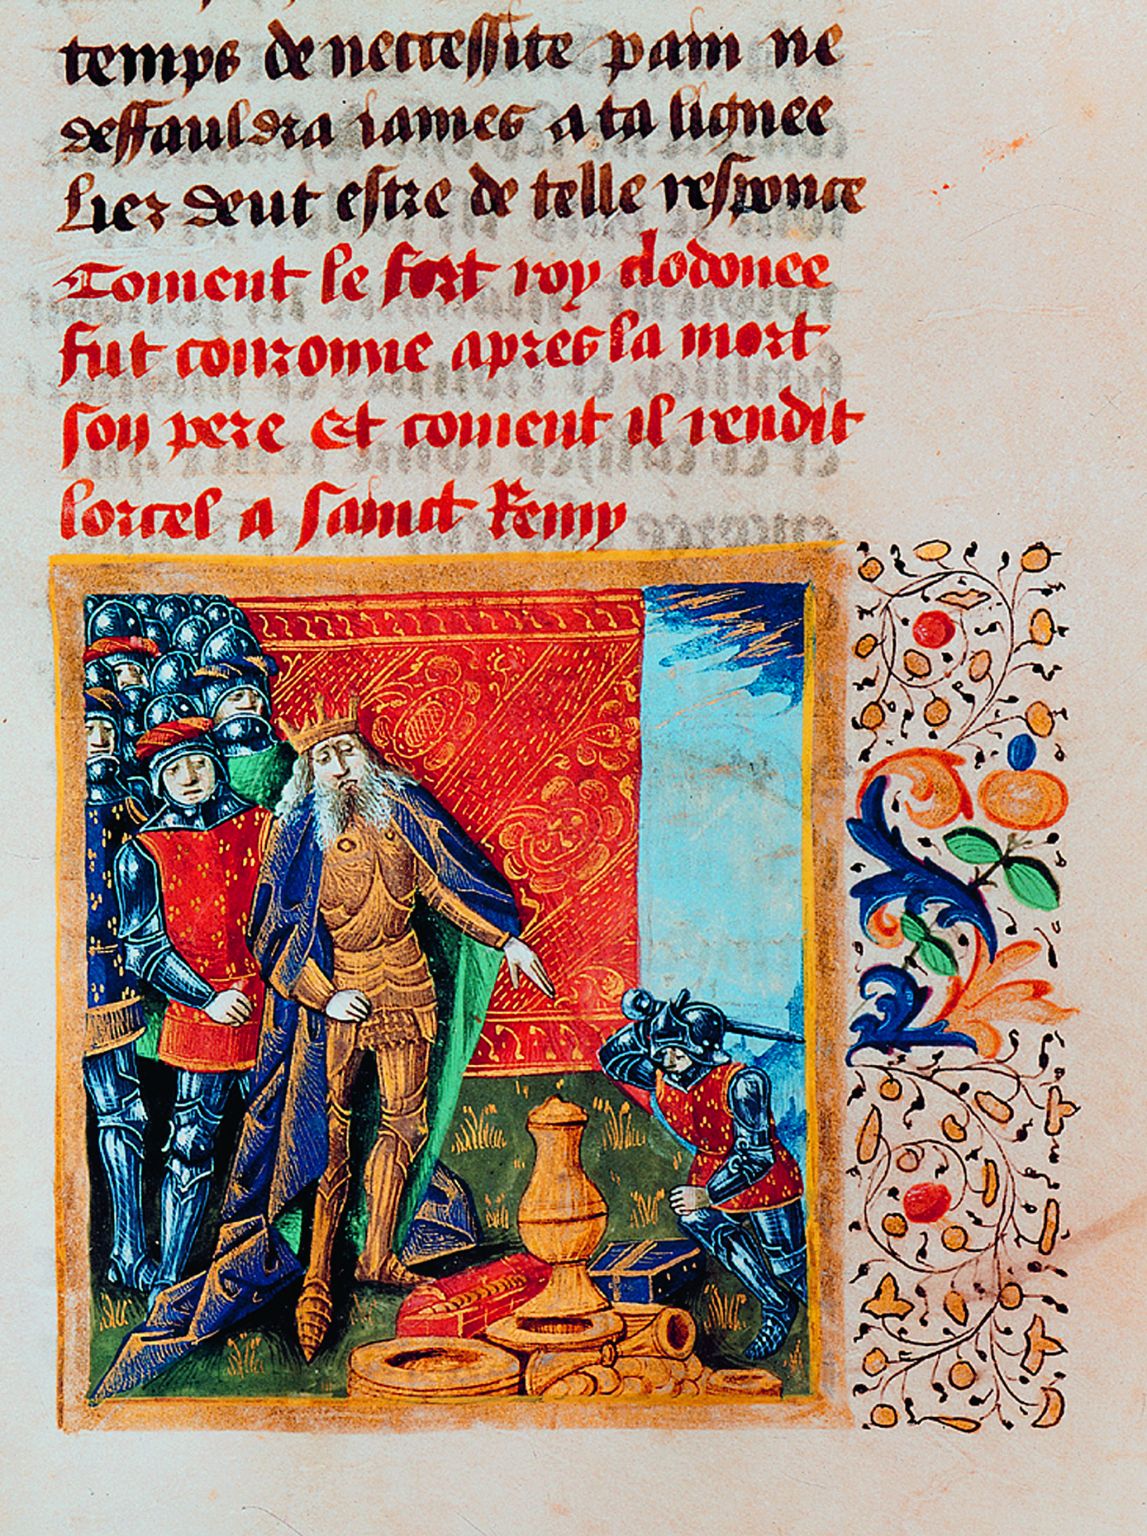 temps de neccessite pain ne
deffauldra iames a ta lignee
Liez deut estre de telle responce
Coment le fort roy clodouee
fut couronne apres la mort
son pere Et coment il rendit
lorcel a sainct Remy